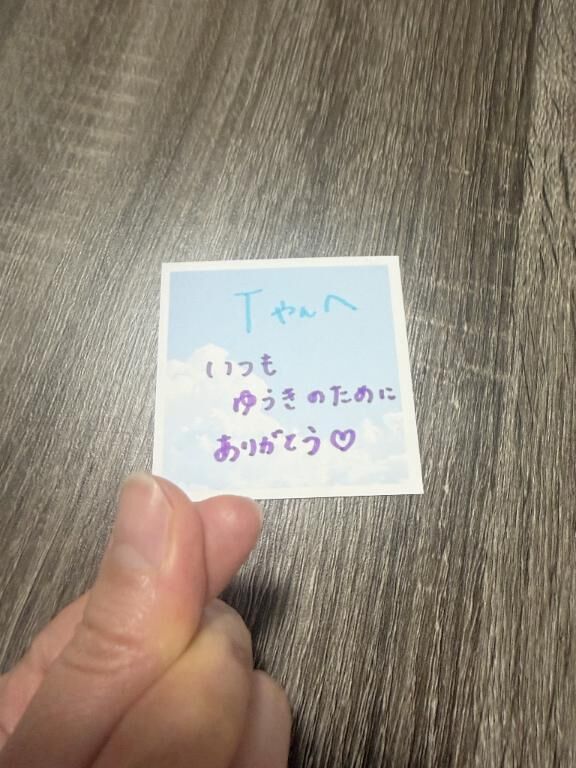 Tやんへ
いつも
ゆうきのために
ありがとう♡